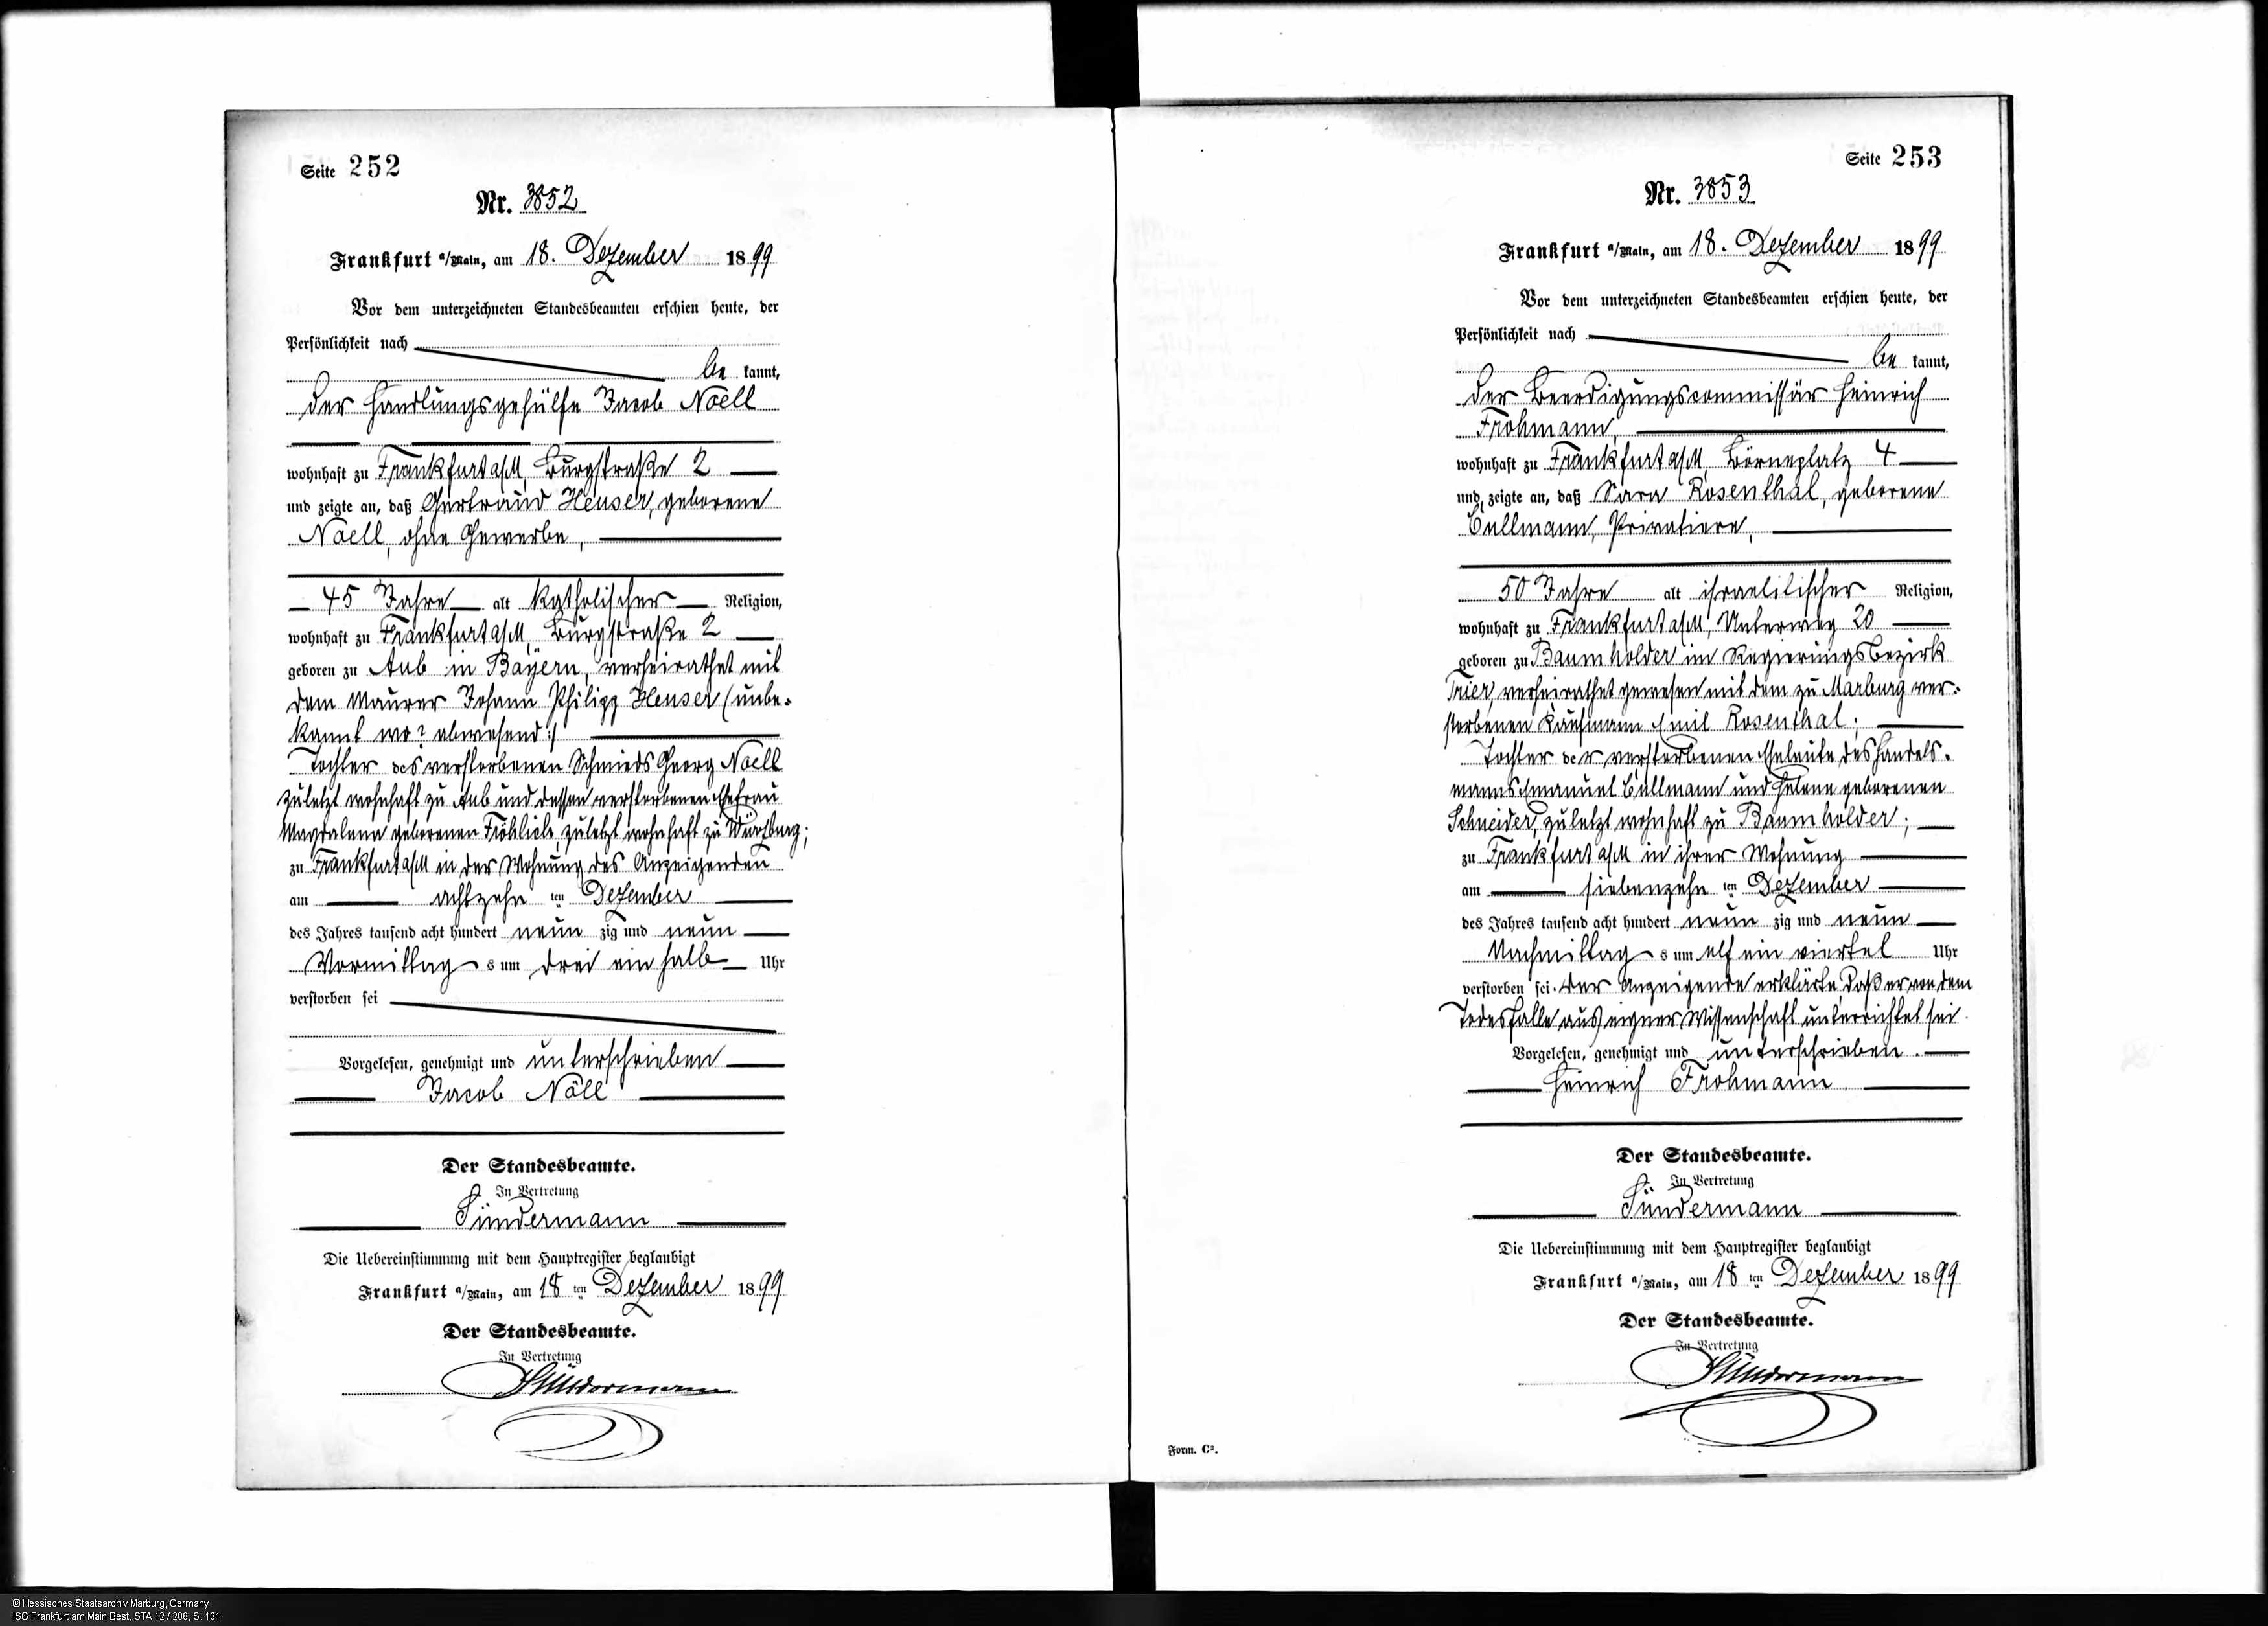 Seite 252
Nr. 3852
Frankfurt a/Main, am 18. Dezember 1899
Vor dem unterzeichneten Standesbeamten erschien heute, der
Persönlichkeit nach
be kannt,
der Handlungsgehülfe Jacob Noell
wohnhaft zu Frankfurt a/M, Burgstraße 2
und zeigte an, daß Gertraud Heuser, geborene
Noell, ohne Gewerbe,
45 Jahre alt katholischer Religion,
wohnhaft zu Frankfurt a/M, Burgstraße 2
geboren zu Aub in Bayern, verheirathet mit
dem Maurer Johann Philipp Heuser (unbe-
kannt wo? abwesend:/
Tochter des verstorbenen Schmieds Georg Noell
zuletzt wohnhaft zu Aub und dessen verstorbenen Ehefrau
Magdalena geborenen Fröhlich, zuletzt wohnhaft zu Würzburg;
zu Frankfurt a/M in der Wohnung des Anzeigenden
am achtzehn ten Dezember
des Jahres tausend acht hundert neun zig und neun
Vormittag s um drei ein halb Uhr
verstorben sei
Vorgelesen, genehmigt und unterschrieben
Jacob Nöll
Der Standesbeamte.
In Vertretung
Sündermann
Die Uebereinstimmung mit dem Hauptregister beglaubigt
Frankfurt a/Main, am 18 ten Dezember 1899
Der Standesbeamte.
In Vertretung
Sündermann
Seite 253
Nr. 3853
Frankfurt a/Main, am 18. Dezember 1899
Vor dem unterzeichneten Standesbeamten erschien heute, der
Persönlichkeit nach
be kannt,
der Beerdigungscommissär Heinrich
Frohmann,
wohnhaft zu Frankfurt a/M, Börneplatz 4
und zeigte an, daß Sara Rosenthal, geborene
Cullmann, Privatiere,
50 Jahre alt israelitischer Religion,
wohnhaft zu Frankfurt a/M, Unterweg 20
geboren zu Baumholder im Regierungsbezirk
Trier, verheirathet gewesen mit dem zu Marburg ver-
storbenen Kaufmann Emil Rosenthal;
Tochter der verstorbenen Eheleute des Handels-
manns Emanuel Cullmann und Helene geborenen
Schneider, zuletzt wohnhaft zu Baumholder;
zu Frankfurt a/M in ihrer Wohnung
am siebenzehn ten Dezember
des Jahres tausend acht hundert neun zig und neun
Nachmittag s um elf ein viertel Uhr
verstorben sei. Der Anzeigende erklärte, daß er von dem
Todesfalle aus eigner Wissenschaft unterrichtet sei.
Vorgelesen, genehmigt und unterschrieben.
Heinrich Frohmann
Der Standesbeamte.
In Vertretung
Sündermann
Die Uebereinstimmung mit dem Hauptregister beglaubigt
Frankfurt a/Main, am 18 ten Dezember 1899
Der Standesbeamte.
In Vertretung
Sündermann
Form. C².
© Hessisches Staatsarchiv Marburg, Germany
ISG Frankfurt am Main Best. STA 12 / 288, S. 131